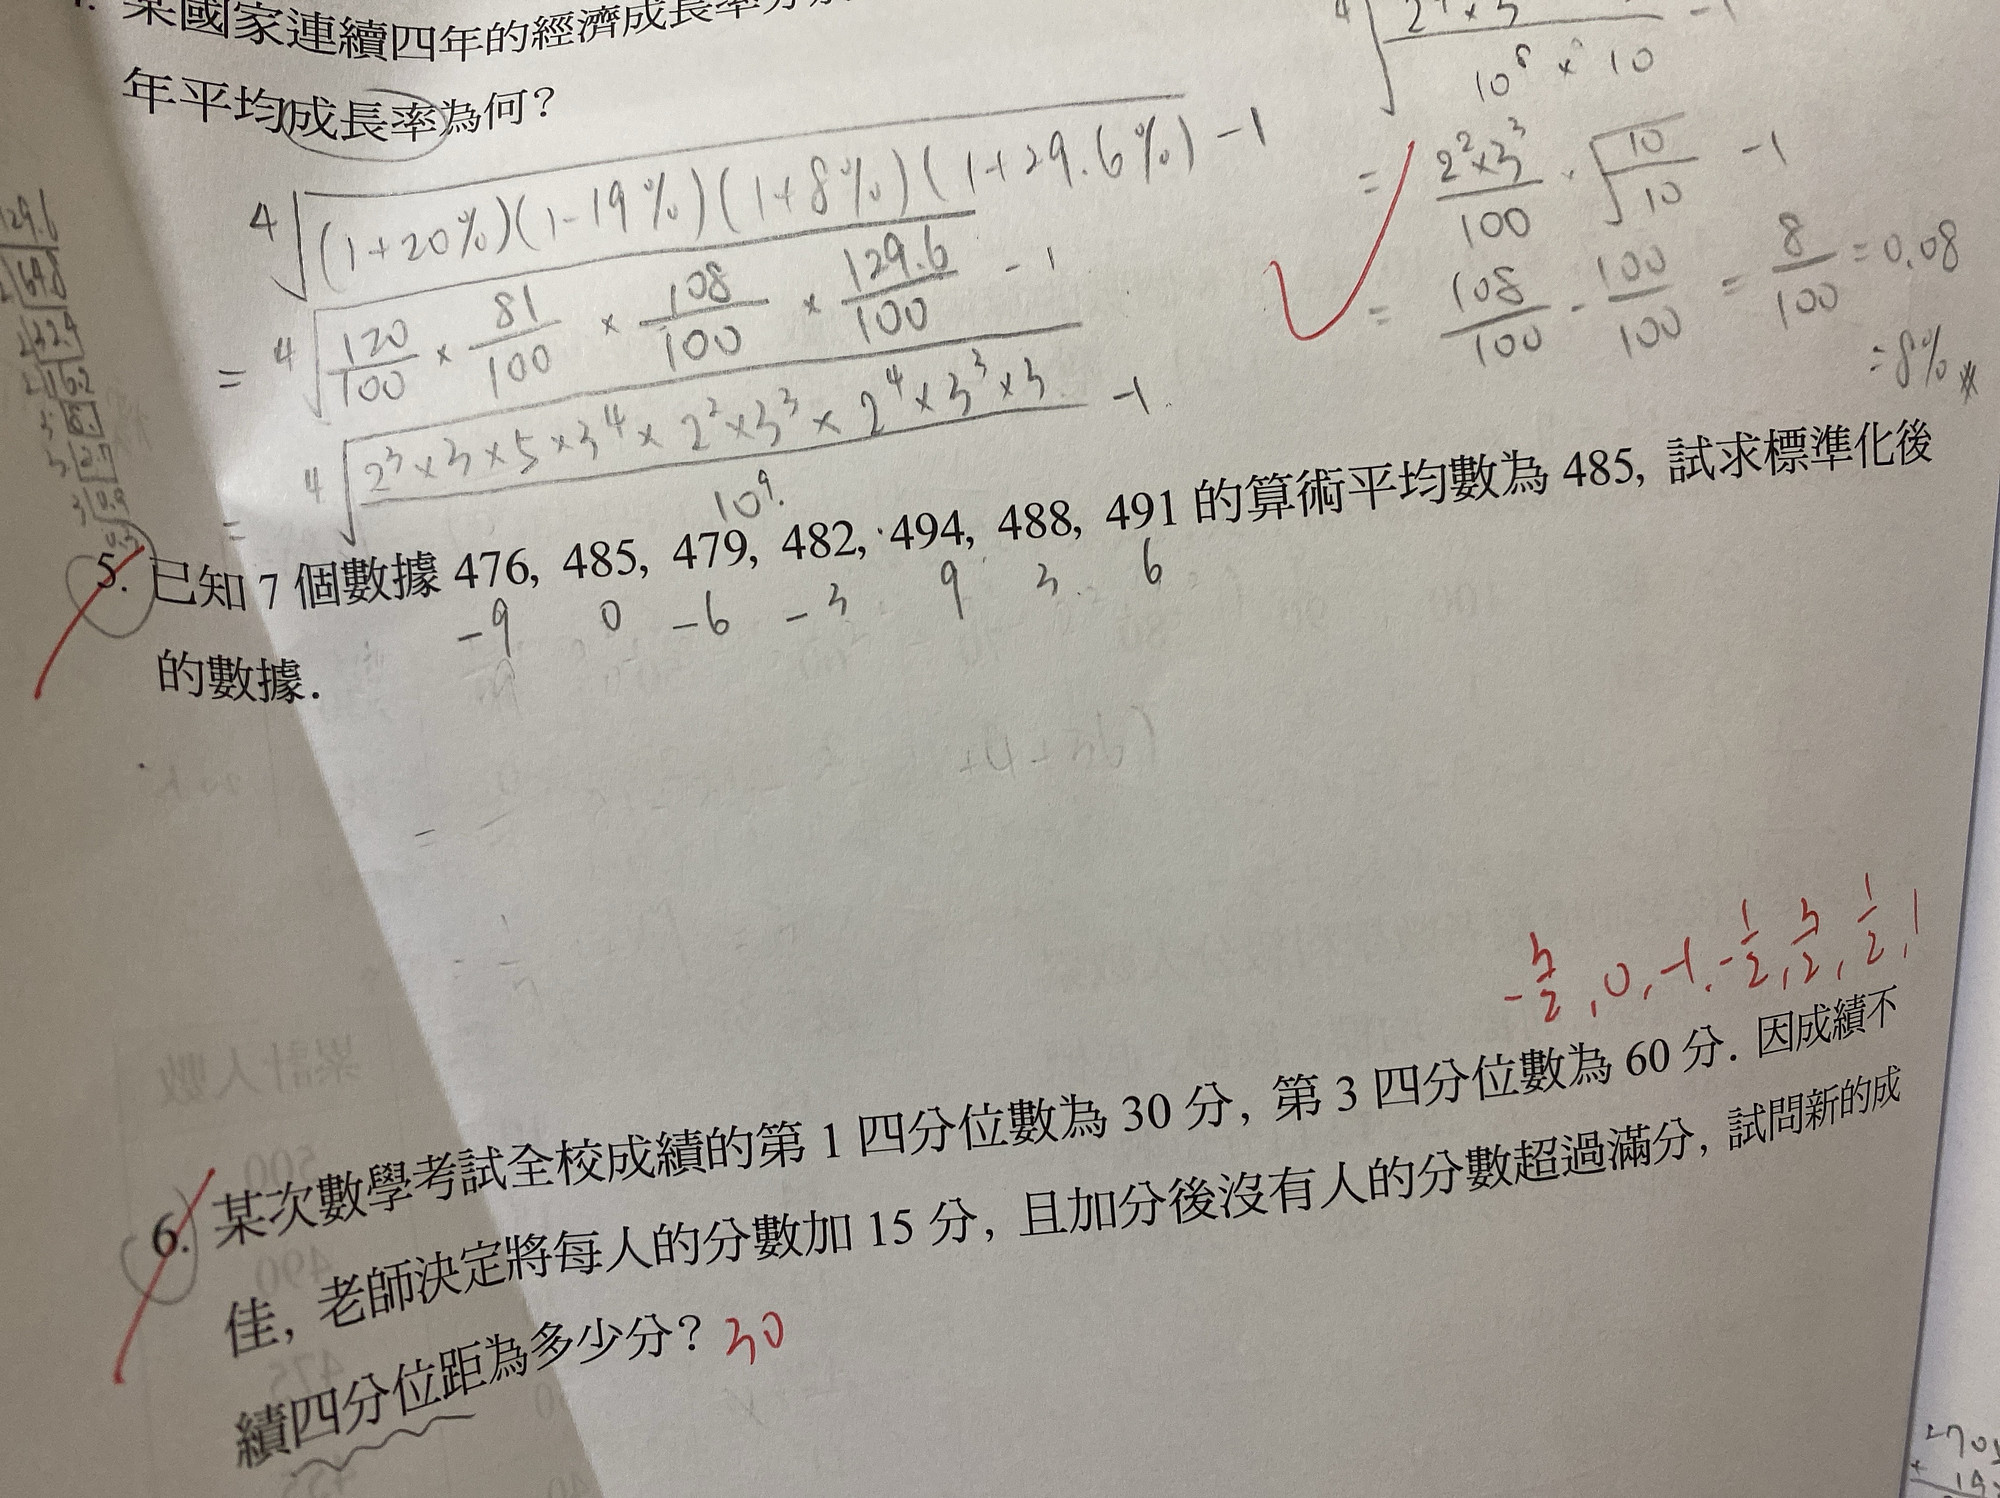 某國家連續四年的經濟成長率分
年平均成長率為何?
⁴√(1+20%)(1-19%)(1+8%)(1+29.6%) -1
= ⁴√120/100 × 81/100 × 108/100 × 129.6/100 -1
= ⁴√2³×3×5×3⁴×2²×3³×2⁴×3³×3/10⁹ -1
10⁸ × 10
= 2²×3³/100 · √10/10 -1
= 108/100 - 100/100 = 8/100 = 0.08
= 8%
129.6
64.8
32.4
16.2
8.1
2.7
0.9
5. 已知 7 個數據 476, 485, 479, 482, 494, 488, 491 的算術平均數為 485, 試求標準化後
-9 0 -6 -3 9 3 6
的數據.
-3/2, 0, -1, -1/2, 3/2, 1/2, 1
6. 某次數學考試全校成績的第 1 四分位數為 30 分, 第 3 四分位數為 60 分. 因成績不
佳, 老師決定將每人的分數加 15 分, 且加分後沒有人的分數超過滿分, 試問新的成
績四分位距為多少分? 30